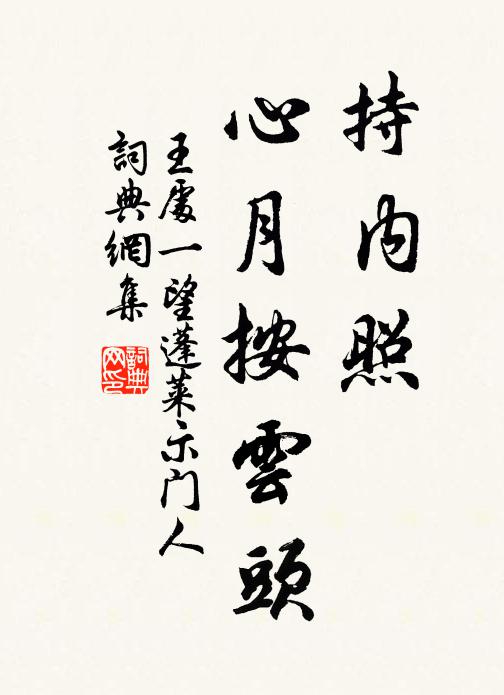 持内照
心月按雲頭
王處一望蓬萊示門人
詞典網集
詞典网印